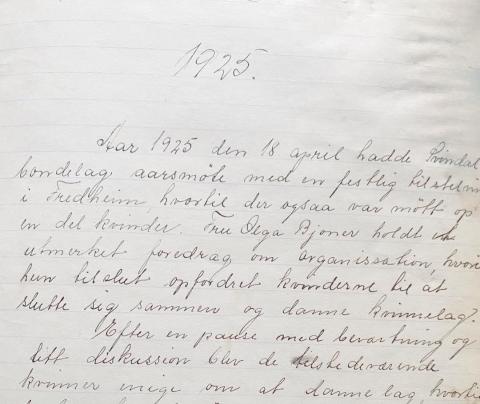 1925.
Aar 1925 den 18 april hadde Kvindal
bondelag aarsmöte med en festlig tilstelnin
i Fredheim, hvortil der ogsaa var mött op
en del kvinder. Fru Olga Bjoner holdt et
utmerket foredrag om organisation, hvori
hun tilslut opfordret kvinderne til at
slutte sig sammen og danne kvinnelag.
Efter en pause med bevertning og
litt diskussion blev de tilstedeværende
kvinner enige om at danne lag, hvortil